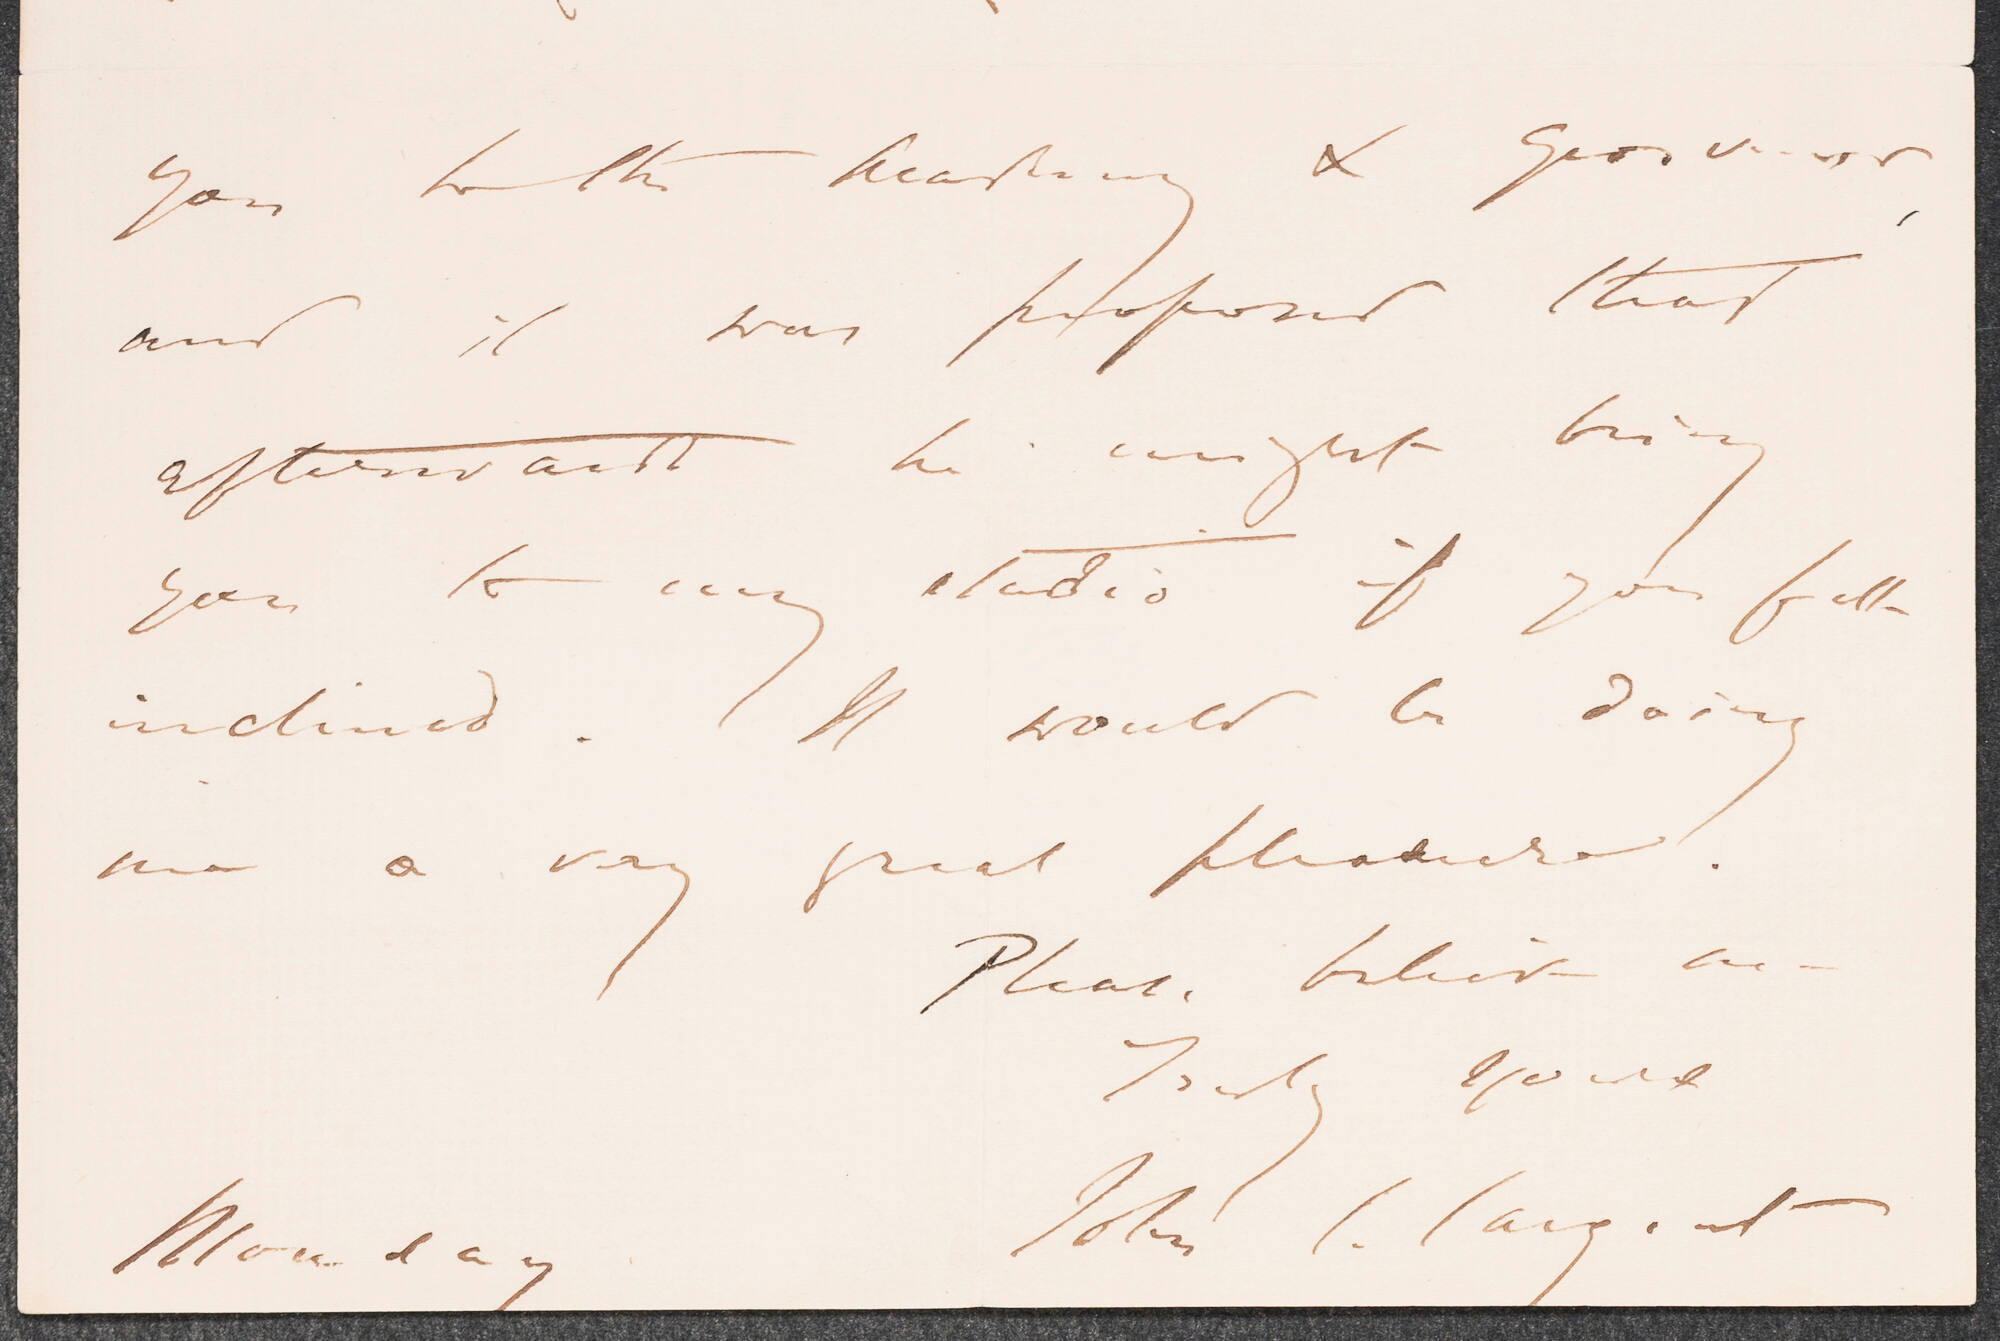 you to the Academy & Grosvenor,
and it was proposed that
afterwards he might bring
you to my studio if you felt
inclined. It would be doing
me a very great pleasure.
Please believe me
Truly yours
John S. Sargent
Monday